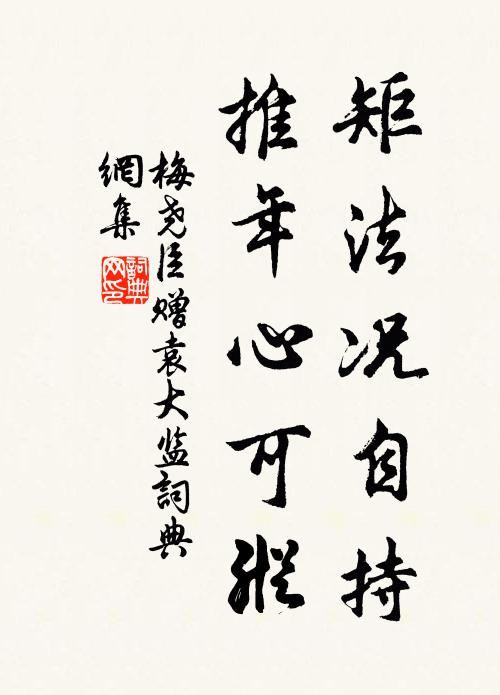 矩法况自持
推年心可縱
梅尧臣赠袁大监詞典
網集
詞典
网印